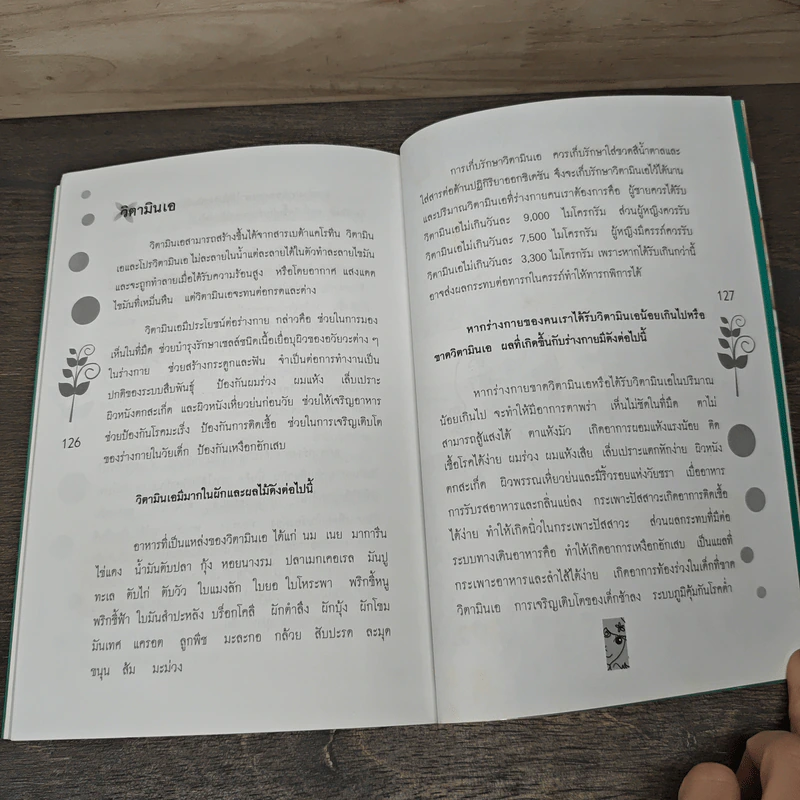 วิตามินเอ
วิตามินเอสามารถสร้างขึ้นได้จากสารเบต้าแคโรทีน วิตามิน
เอและโปรวิตามินเอ ไม่ละลายในน้ำแต่ละลายได้ในตัวทำละลายไขมัน
และจะถูกทำลายเมื่อได้รับความร้อนสูง หรือโดยอากาศ แสงแดด
ไขมันที่เหม็นหืน แต่วิตามินเอจะทนต่อกรดและด่าง
วิตามินเอมีประโยชน์ต่อร่างกาย กล่าวคือ ช่วยในการมอง
เห็นในที่มืด ช่วยบำรุงรักษาเซลล์ชนิดเนื้อเยื่อบุผิวของอวัยวะต่าง ๆ
ในร่างกาย ช่วยสร้างกระดูกและฟัน จำเป็นต่อการทำงานเป็น
ปกติของระบบสืบพันธุ์ ป้องกันผมร่วง ผมแห้ง เล็บเปราะ
ผิวหนังตกสะเก็ด และผิวหนังเหี่ยวย่นก่อนวัย ช่วยให้เจริญอาหาร
ช่วยป้องกันโรคมะเร็ง ป้องกันการติดเชื้อ ช่วยในการเจริญเติบโต
ของร่างกายในวัยเด็ก ป้องกันเหงือกอักเสบ
126
วิตามินเอมีมากในผักและผลไม้ดังต่อไปนี้
อาหารที่เป็นแหล่งของวิตามินเอ ได้แก่ นม เนย มาการีน
ไข่แดง น้ำมันตับปลา กุ้ง หอยนางรม ปลาแมกเคอเรล มันปู
ทะเล ตับไก่ ตับวัว ใบแมงลัก ใบยอ ใบโหระพา พริกชี้หนู
พริกชี้ฟ้า ใบมันสำปะหลัง บร็อกโคลี ผักตำลึง ผักบุ้ง ผักโขม
มันเทศ แครอต ลูกพีช มะละกอ กล้วย สับปะรด ละมุด
ขนุน ส้ม มะม่วง
การเก็บรักษาวิตามินเอ ควรเก็บรักษาใส่ขวดสีน้ำตาลและ
ใส่สารต่อต้านปฏิกิริยาออกซิเดชัน จึงจะเก็บรักษาวิตามินเอไว้ได้นาน
และปริมาณวิตามินเอที่ร่างกายคนเราต้องการคือ ผู้ชายควรได้รับ
วิตามินเอไม่เกินวันละ 9,000 ไมโครกรัม ส่วนผู้หญิงควรรับ
วิตามินเอไม่เกินวันละ 7,500 ไมโครกรัม ผู้หญิงมีครรภ์ควรรับ
วิตามินเอไม่เกินวันละ 3,300 ไมโครกรัม เพราะหากได้รับเกินกว่านี้
อาจส่งผลกระทบต่อทารกในครรภ์ทำให้ทารกพิการได้
127
หากร่างกายของคนเราได้รับวิตามินเอน้อยเกินไปหรือ
ขาดวิตามินเอ ผลที่เกิดขึ้นกับร่างกายมีดังต่อไปนี้
หากร่างกายขาดวิตามินเอหรือได้รับวิตามินเอในปริมาณ
น้อยเกินไป จะทำให้มีอาการตาพร่า เห็นไม่ชัดในที่มืด ตาไม่
สามารถสู้แสงได้ ตาแห้งมัว เกิดอาการผอมแห้งแรงน้อย ติด
เชื้อโรคได้ง่าย ผมร่วง ผมแห้งเสีย เล็บเปราะแตกหักง่าย ผิวหนัง
ตกสะเก็ด ผิวพรรณเหี่ยวย่นและมีริ้วรอยแห่งวัยชรา เบื่ออาหาร
การรับรสอาหารและกลิ่นแย่ลง กระเพาะปัสสาวะเกิดอาการติดเชื้อ
ได้ง่าย ทำให้เกิดนิ่วในกระเพาะปัสสาวะ ส่วนผลกระทบที่มีต่อ
ระบบทางเดินอาหารคือ ทำให้เกิดอาการเหงือกอักเสบ เป็นแผลที่
กระเพาะอาหารและลำไส้ได้ง่าย เกิดอาการท้องร่วงในเด็กที่ขาด
วิตามินเอ การเจริญเติบโตของเด็กช้าลง ระบบภูมิคุ้มกันโรคต่ำ